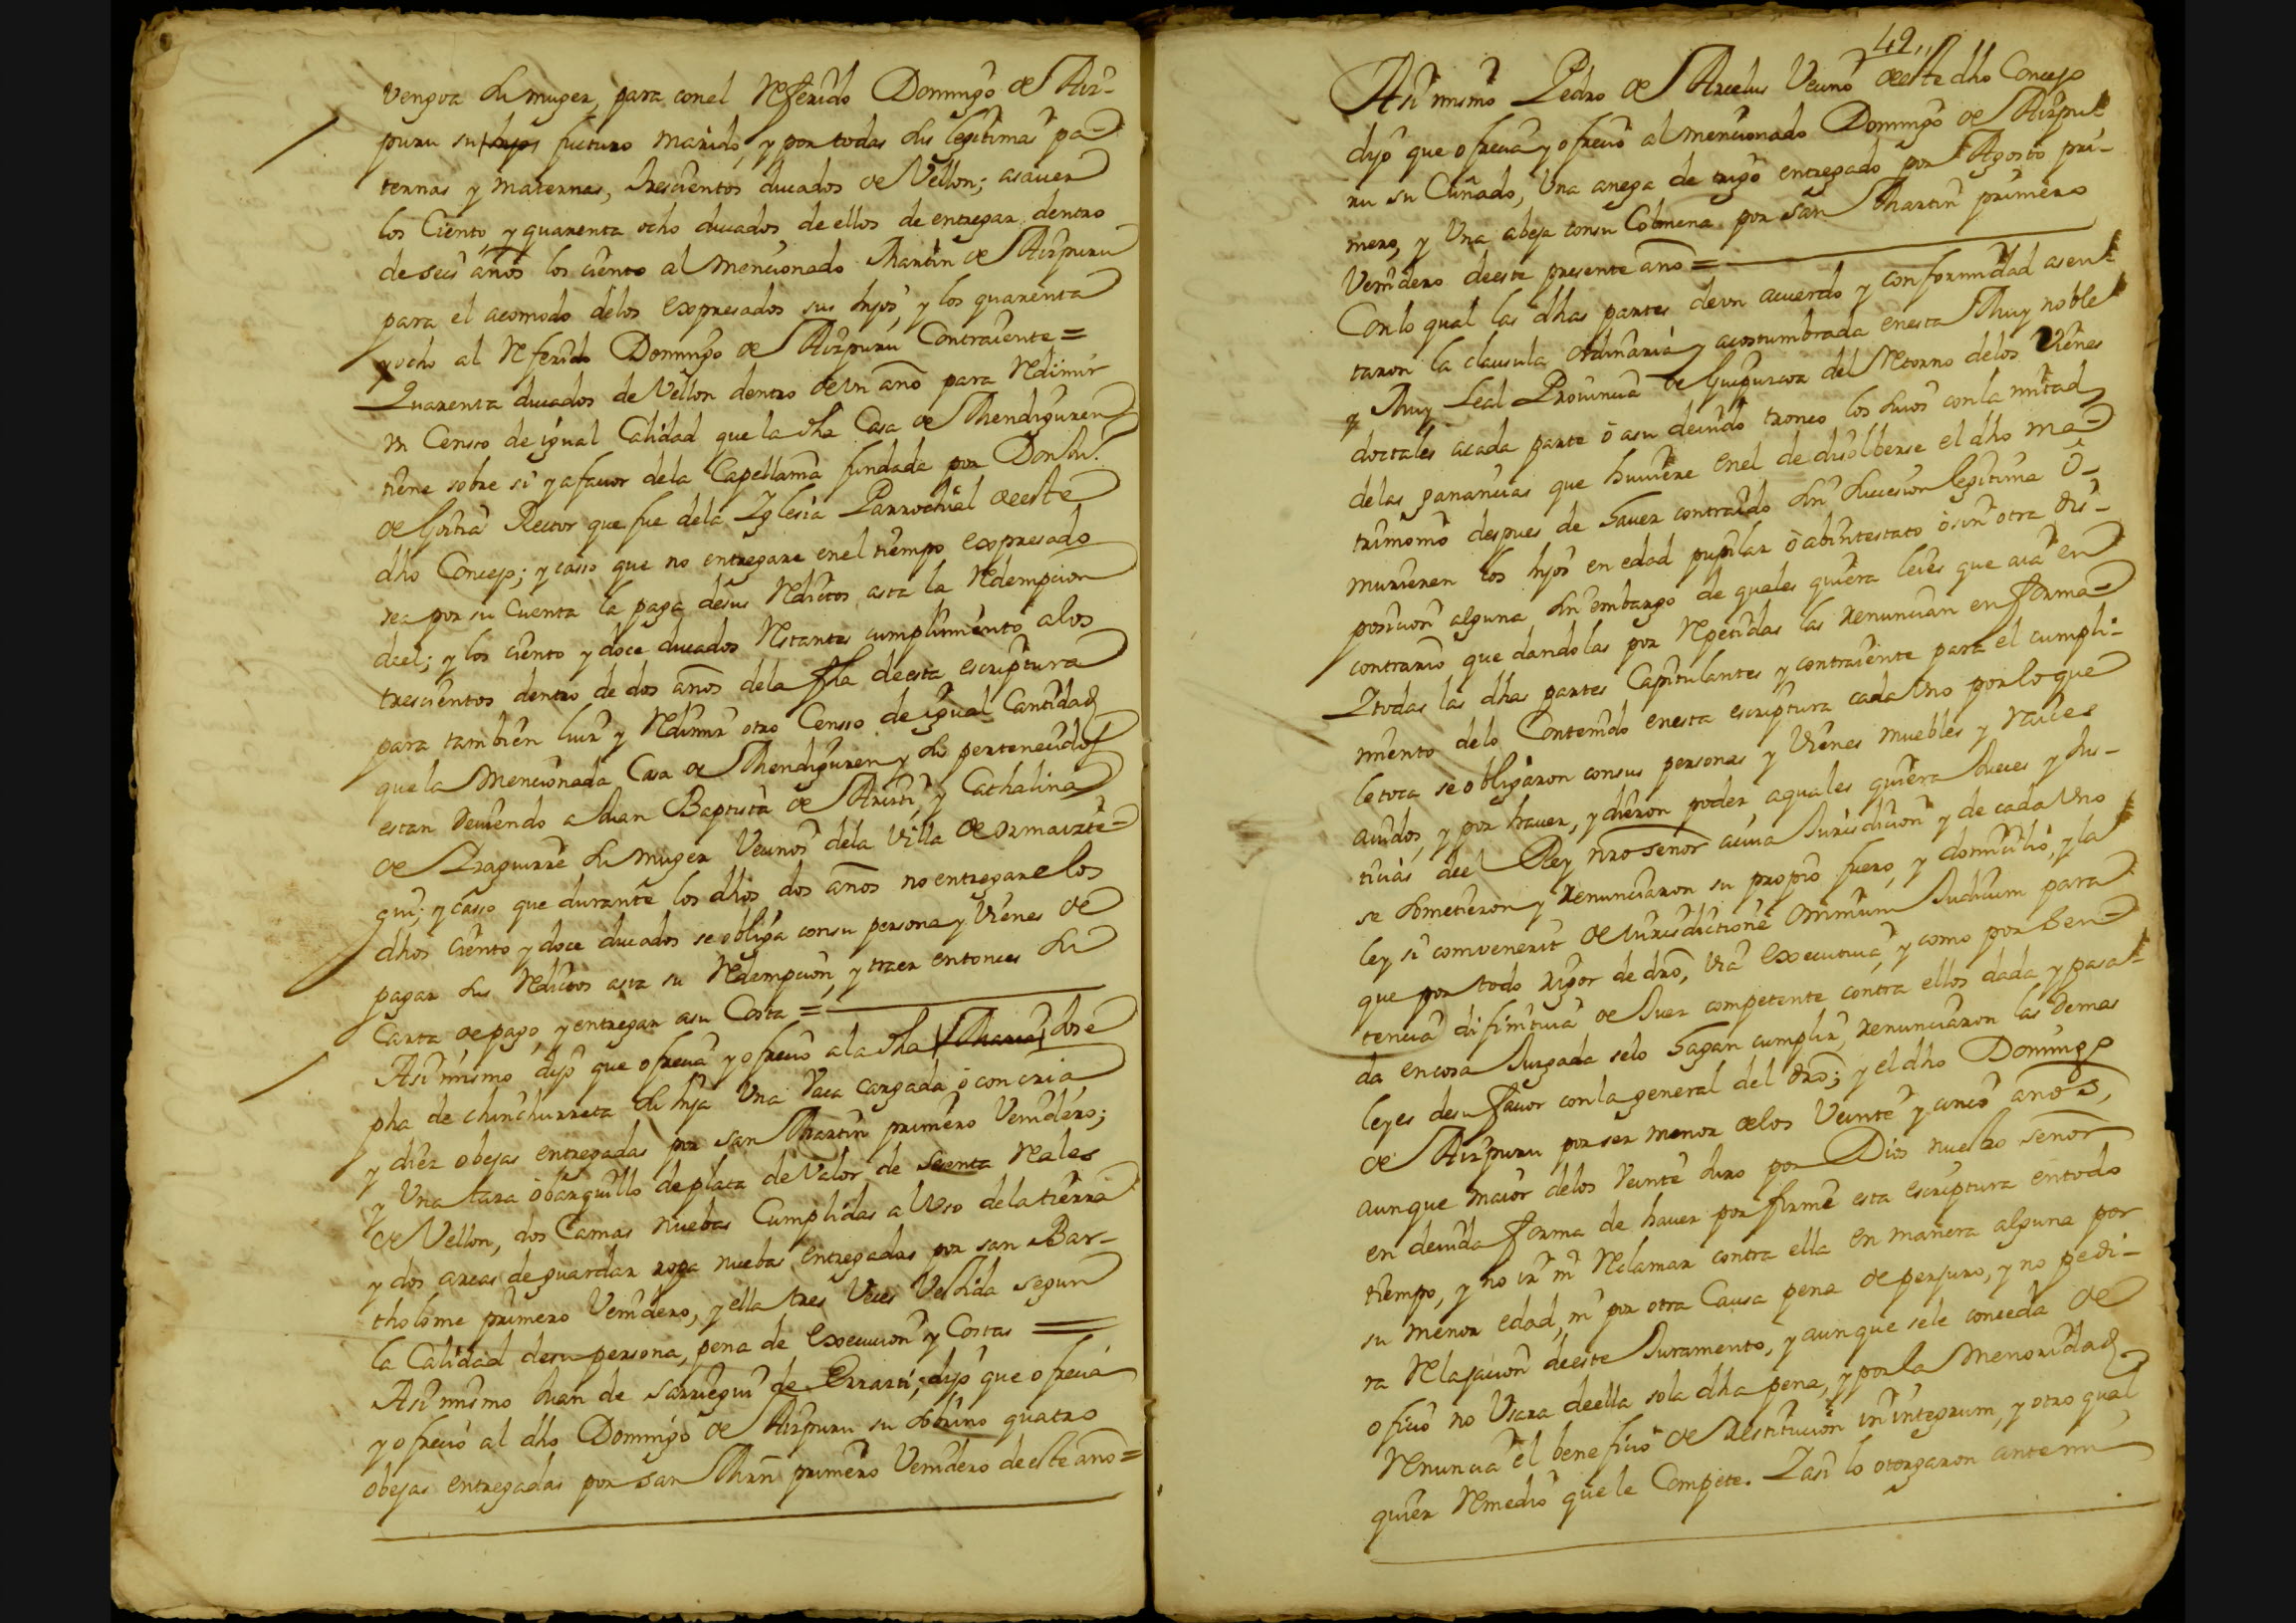 vengoa su muger, para con el Referido Domingo de Aiz-
puru su hijo futuro marido, y por todas sus legitimas pa-
ternas y maternas, trescientos ducados de Vellon; asauer
los Ciento, y quarenta ocho ducados de ellos de entregar dentro
de seis años los ciento al mencionado Martin de Aizpuru
para el acomodo delos expresados sus hijos, y los quarenta
y ocho al Referido Domingo de Aizpuru Contraiente =
Quarenta ducados de Vellon dentro de Vn año para Redimir
Vn Censso de igual Calidad que la dha Casa de Mendiguren
tiene sobre si y afauor dela Capellania fundada por Don
de Goitia Rector que fue dela Iglesia Parrochial deeste
dho Concejo; y casso que no entregare enel tiempo expresado
sea por su cuenta la paga desus Reditos asta la Redempcion
deel; y los ciento y doce ducados Restantes cumplimento alos
trescientos dentro de dos años dela fha deesta escriptura
para tambien luir y Redimir otro Censso de igual Cantidad
que la Mencionada Casa de Mendiguren y sus pertenecidos
estan deuiendo a Juan Baptista de Aristi, y Cathalina
de Yraguirre su muger Vecinos dela Villa de ormaizte-
gui; y casso que durante los dhos dos años no entregare los
dhos ciento y doce ducados se obliga consu persona y Vienes de
pagar sus Reditos asta su Redempcion, y traer entonces su
Carta de pago, y entregar asu Costa =
Asi mismo dijo que ofrecia y ofrecio ala dha Maria Jose
pha de chinchurreta su hija Vna Vaca cargada, o con cria,
y diez obejas entregadas por san Martin primero Venidero;
y Vna taza o barquillo de plata de Valor de sesenta Reales
de Vellon, dos Camas nuebas Cumplidas a Vso dela tierra
y dos arcas de guardar ropa nuebas entregadas por san Bar-
tholome primero Venidero, y ella tres Veces Vestida segun
la Calidad desu persona, pena de execucion y Costas =
Asi mismo Juan de sarriegui de Errarti, dijo que ofrecia
y ofrecio al dho Domingo de Aizpuru su sobrino quatro
obejas entregadas por san Mrn primero Venidero deeste año =
49,,
Asi mismo Pedro de Arcelus Vecino deeste dho Concejo
dijo que ofrecia y ofrecio al mencionado Domingo de Aizpu-
ru su Cuñado, Vna anega de trigo entregado por Agosto pri-
mero, y Vna abeja consu Colmena por san Martin primero
Venidero deeste presente año =
Conlo qual las dhas partes devn acuerdo y conformidad asen-
taron la clausula ordinaria y acostumbrada enesta Muy noble
y Muy Leal Prouincia de Guipuzcoa del Retorno delos Vienes
doctales acada parte o asu deuido tronco los suios conla mitad
delas ganancias que huuiere enel de disolberse el dho ma-
trimonio despues de hauer contraido sin succesion legitima o-
murieren los hijos en edad pupilar o abintestato o sin otra dis-
posicion alguna sin embargo de quales quiera leies que aia en
contrario que dandolas por Repetidas las renuncian en forma
Y todas las dhas partes Capitulantes y contraiente para el cumpli-
miento delo Contenido enesta escriptura cada Vno por lo que
le toca se obligaron consus personas y Vienes muebles y raices
auidos, y por hauer, y dieron poder aquales quiera Jueces y Jus-
ticias del Rey nro señor acuia Jurisdicion y de cada Vno
se sometieron y renunciaron su propio fuero, y domicilio, y la
ley si convenerit de iurisdictione omnium Judicum para
que por todo rigor de dro, via executiua, y como por sen-
tencia difinitiua de Juez competente contra ellos dada y pasa-
da encosa Juzgada selo hagan cumplir, renunciaron las demas
leyes desu fauor conla general del dro; y el dho Domingo
de Aizpuru por ser menor delos Veinte y cinco años,
aunque maior delos Veinte Juro por Dios nuestro señor
en deuida forma de hauer por firme esta escriptura entodo
tiempo, y no ir ni Reclamar contra ella en manera alguna por
su menor edad, ni por otra Causa pena de perjuro, y no pedi-
ra Relajacion deeste Juramento, y aunque sele conceda de
oficio no Vsara deella sola dha pena, y por la menoridad
Renuncia el beneficio de Restitucion in integrum, y otro qual
quier Remedio que le Compete. Y asi lo otorgaron ante mi